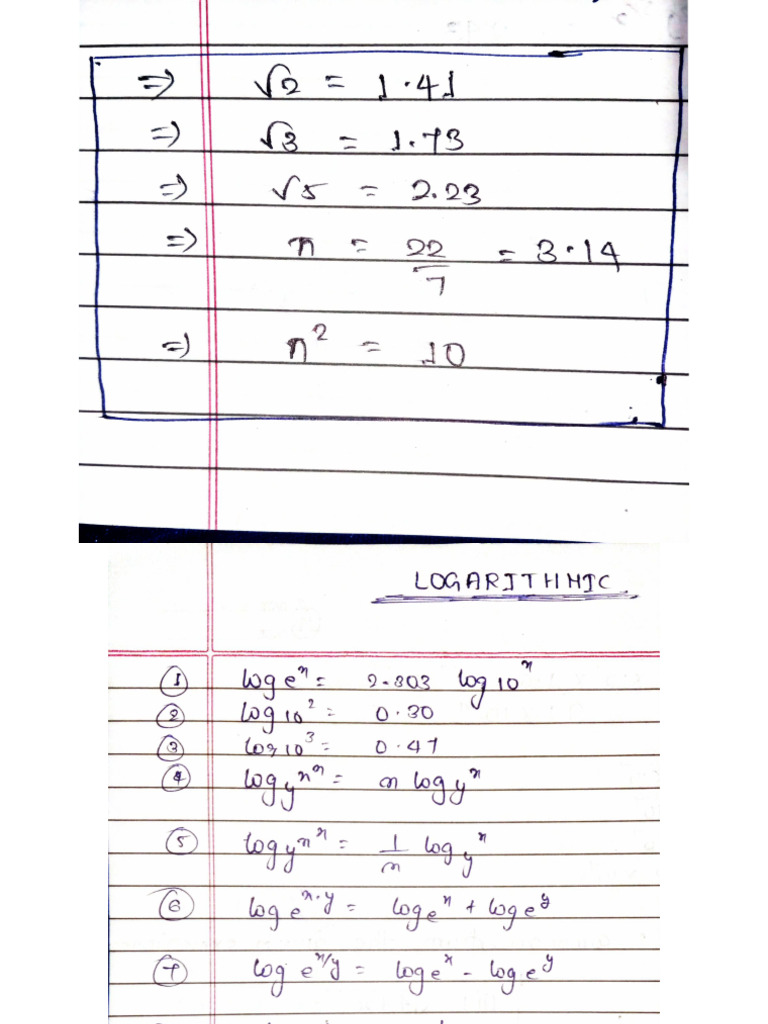 ⇒ √2 = 1.41
⇒ √3 = 1.73
⇒ √5 = 2.23
⇒ π = 22/7 = 3.14
⇒ π² = 10
LOGARITHMIC
① log e^x = 2.303 log 10^x
② log 10^2 = 0.30
③ log 10^3 = 0.47
④ log y^x^n = n log y^x
⑤ log y^n^x = 1/n log y^x
⑥ log e^x·y = log e^x + log e^y
⑦ log e^x/y = log e^x - log e^y